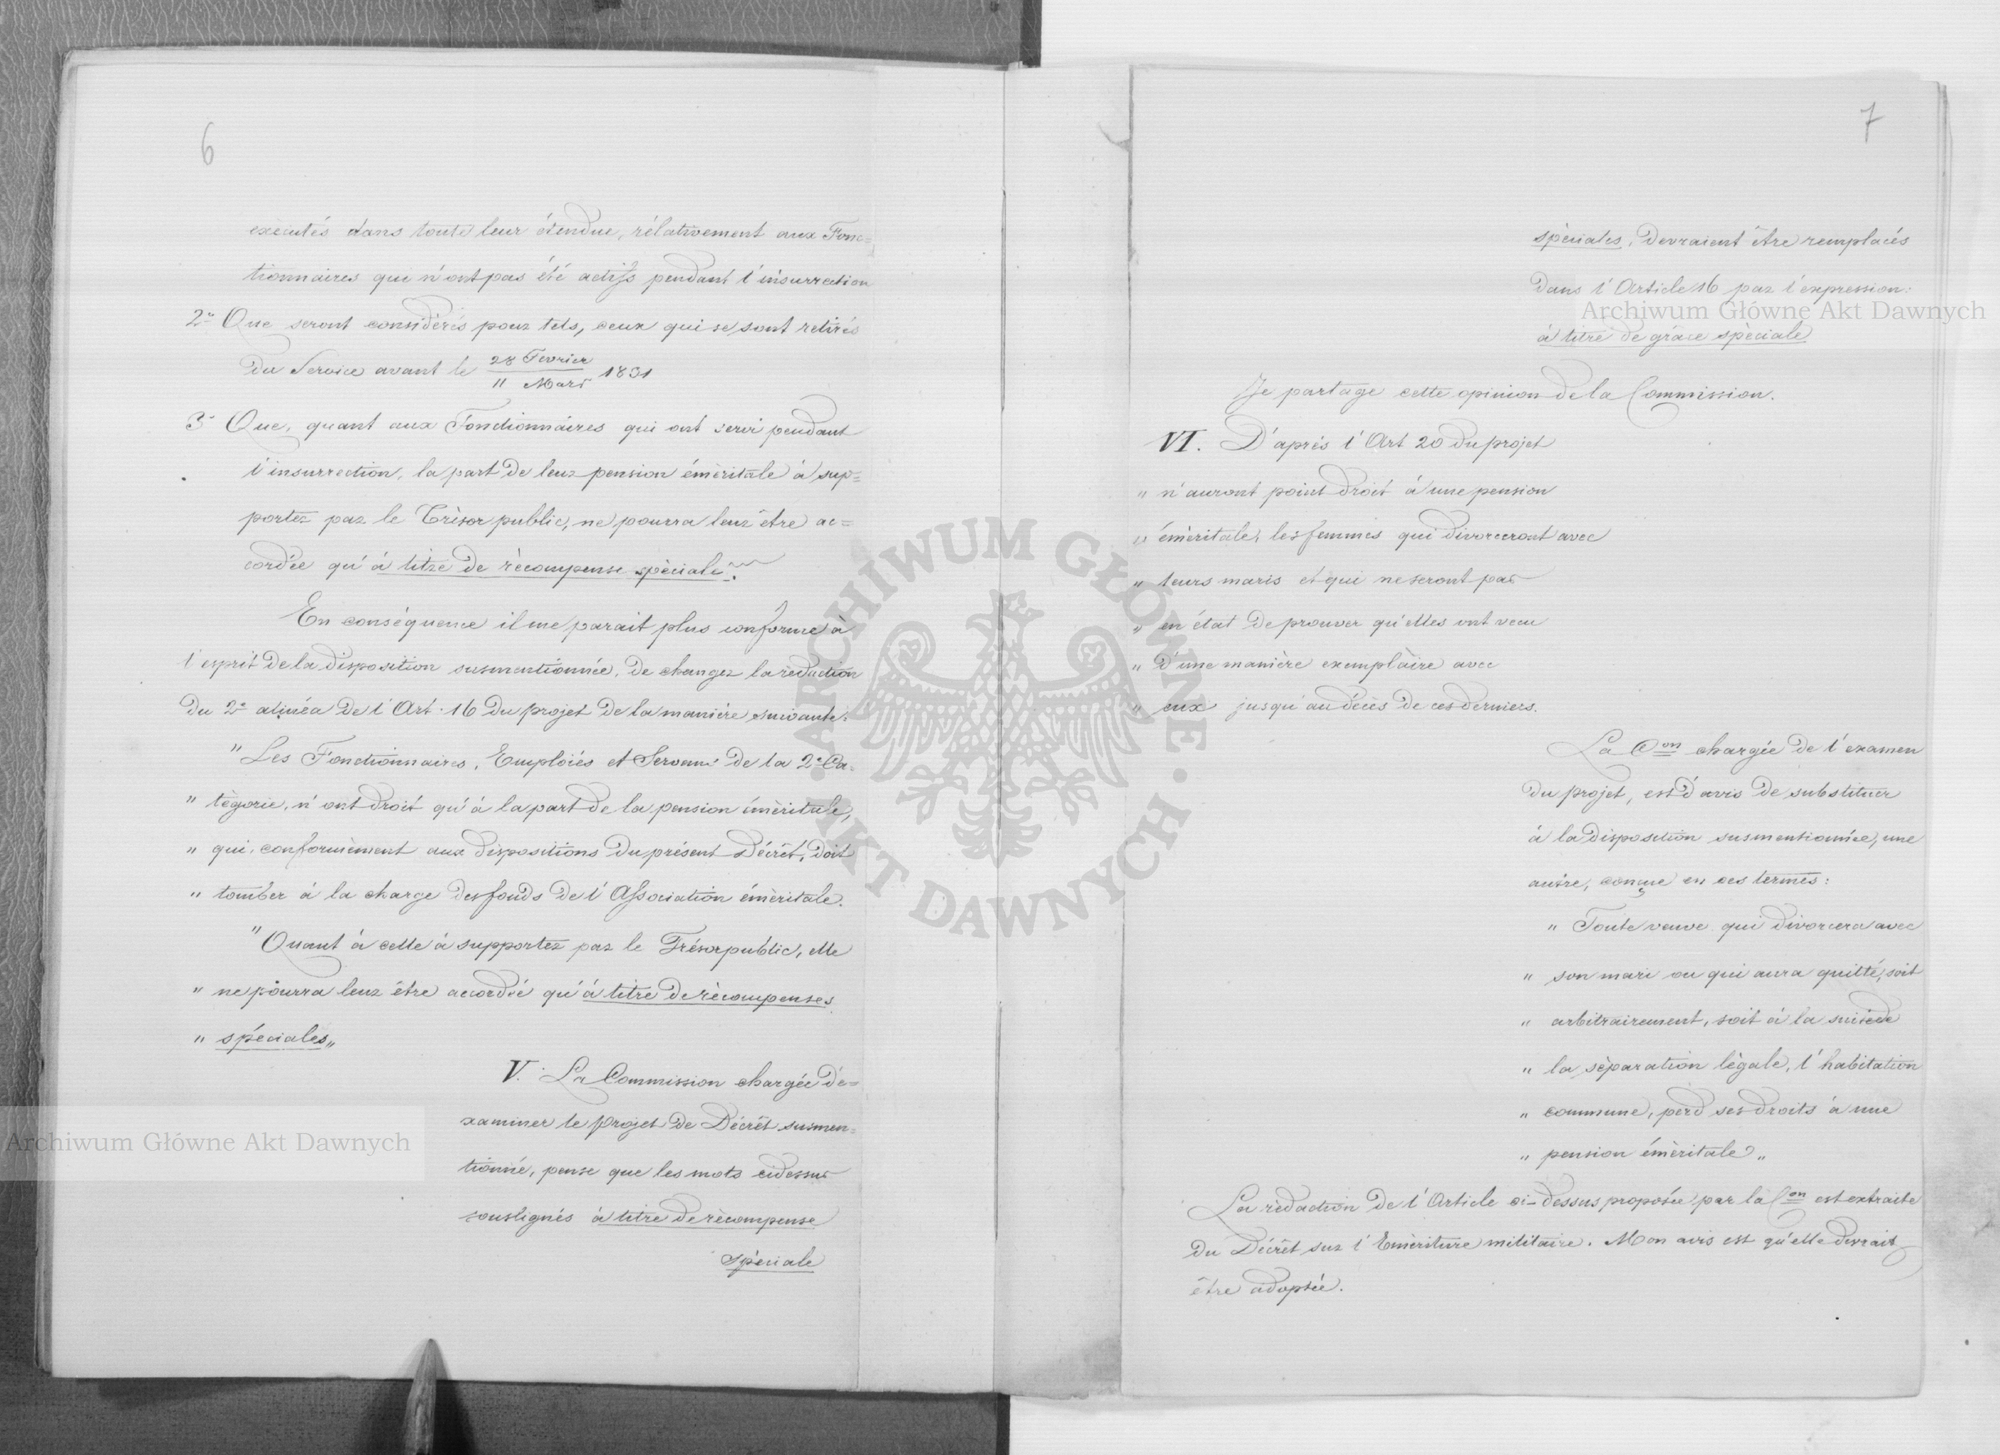 6
exécutés dans toute leur étendue, rélativement aux Fonc=
tionnaires qui n'ont pas été actifs pendant l'insurrection
2° Que seront considérés pour tels, ceux qui se sont retirés
du Service avant le 28 Fevrier / 11 Mars 1831
3° Que, quant aux Fonctionnaires qui ont servi pendant
l'insurrection, la part de leur pension émèritale à sup=
porter par le Trèsor public, ne pourra leur être ac=
cordée qu'à titre de rècompense spèciale."
En conséquence il me parait plus conforme à
l'esprit de la disposition susmentionnée, de changer la rèdaction
du 2° alinéa de l'Art. 16 du projet de la manière suivante:
"Les Fonctionnaires, Emploiés et Servans de la 2° Ca=
" tègorie, n'ont droit qu'à la part de la pension émèritale,
" qui, conformèment aux dispositions du présent Décrêt, doit
" tomber à la charge des fonds de l'Association émèritale.
"Quant à celle à supporter par le Trésor public, elle
" ne pourra leur être accordée qu'à titre de rècompenses
" spéciales„
V. La Commission chargée d'e=
xaminer le Projet de Décrêt susmen=
tionné, pense que les mots cidessus
soulignés à titre de rècompense
spèciale
7
spèciales, devraient être remplacés
dans l'Article 16 par l'expression:
à titre de grâce spèciale
Je partage cette opinion de la Commission.
VI. D'après l'Art 20 du projet
" n'auront point droit à une pension
" émèritale, les femmes qui divorceront avec
" leurs maris et qui ne seront pas
" en état de prouver qu'elles ont vecu
" d'une manière exemplàire avec
" eux jusqu'au décès de ces derniers.
La Con chargée de l'examen
du projet, est d'avis de substituer
à la disposition susmentionnée, une
autre, conçue en ces termes:
" Toute veuve qui divorcera avec
" son mari ou qui aura quitté, soit
" arbitrairement, soit à la suite de
" la sèparation lègale, l'habitation
" commune, perd ses droits à une
" pension émèritale„
La rèdaction de l'Article ci-dessus proposée par la Con est extraite
du Décrêt sur l'Emèriture militaire. Mon avis est qu'elle devrait
être adoptée.
Archiwum Główne Akt Dawnych
Archiwum Główne Akt Dawnych
ARCHIWUM GŁÓWNE · AKT DAWNYCH ·